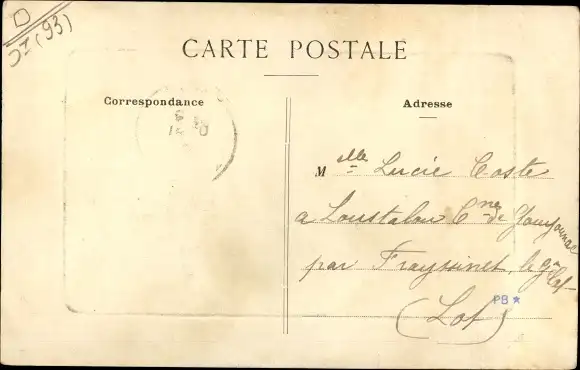 JI (93)
CARTE POSTALE
Correspondance
Adresse
Melle Lucie Coste
a Loustalou Cne de Goujounac
par Frayssinet le Gt
(Lot)
PB*